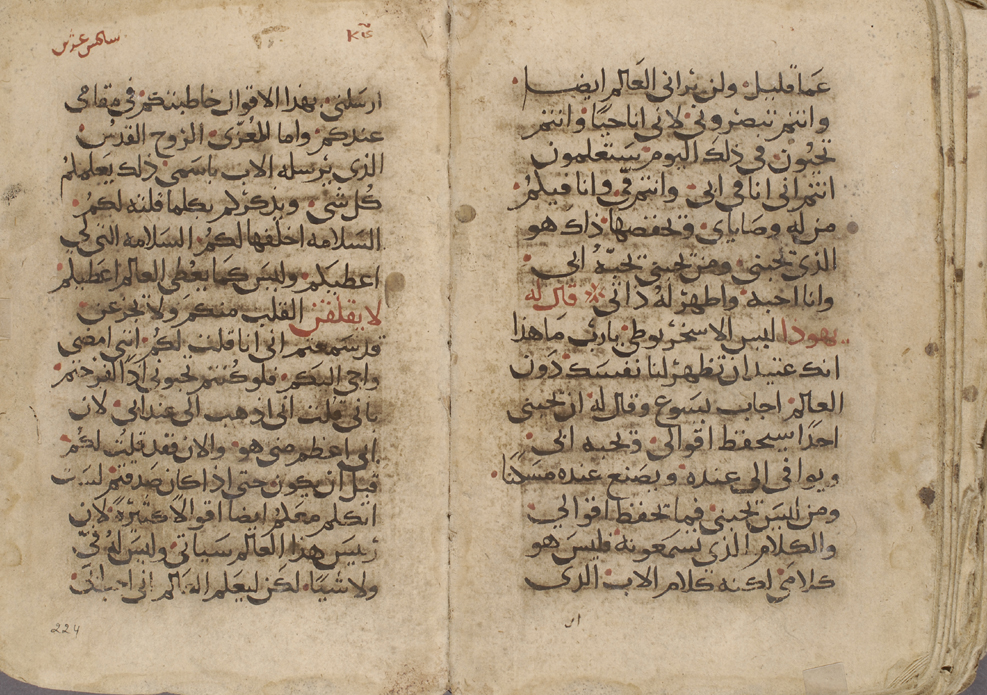 عما قليل ولن يراني العالم ايضا
وانتم تبصروني لاني انا حيا وانتم
تحيون في ذلك اليوم ستعلمون
انتم اني انا في ابي وانتم في وانا فيكم
من له وصاياي وتحفضها ذاك هو
الذي يحبني ومن يحبني يحبه ابي
وانا احبه واظهر له ذاتي قال له
يهودا ليس الاسخريوطي يارب ماهذا
انك عتيد ان تظهر لنا نفسك دون
العالم اجاب يسوع وقال له ان يحبني
احدا سيحفظ اقوالي ويحبه ابي
ويوافي الي عنده ويصنع عنده مسكنا
ومن ليس يحبني فما يحفظ اقوالي
والكلام الذي تسمعونه فليس هو
كلامي لكنه كلام الاب الذي
ارسلني بهذا الاقوال خاطبتكم في مقامي
عندكم واما المعزي الروح القدس
الذي يرسله الاب باسمي ذلك يعلمكم
كل شي ويذكركم بكلما قلته لكم
السلامه اخلفها لكم السلامه التي لي
اعطيكم وليس كما يعطي العالم اعطيكم
لا يقلقن القلب منكم ولا يجزعن
قد سمعتم اني انا قلت لكم انني امضي
واجي اليكم فلو كنتم تحبوني لذا لفرحتم
باني قلت اني اذهب الى عند ابي لان
ابي اعظم مني هو والان فقد قلت لكم
قبل ان يكون حتى اذا كان صدقتم لست
اتكلم معكم ايضا اقوالا كثيرة لان
رييس هذا العالم سياتي وليس له في
ولا شيا لكن ليعلم العالم اني احب
224